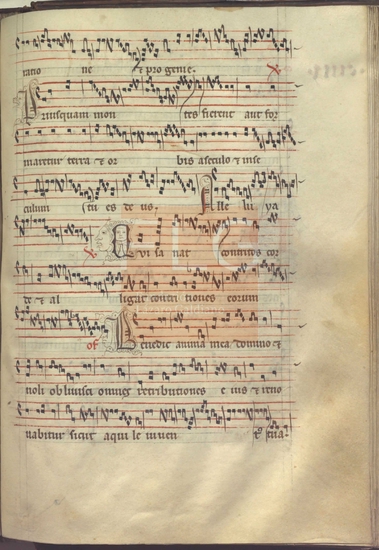 ratio ne & pro genie.
Priusquam mon tes fierent aut for
maretur terra & or bis a seculo & in se
culum tu es de us. Alle lu ya
V Qui sa nat contritos cor
de & al ligat contri tiones eorum
of Benedic anima mea domino &
noli oblivisci omnes retributiones e ius & reno
vabitur sicut aqui le iuven tus tua.